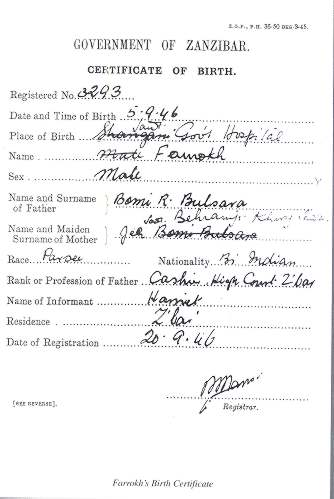 Z.G.P., P.H. 35-50 DEG.3-45.
GOVERNMENT OF ZANZIBAR.
CERTIFICATE OF BIRTH.
Registered No. 3293
Date and Time of Birth 5.9.46
Place of Birth Shangani Gov's Hospital
Name Male Farrokh
Sex Male
Name and Surname of Father } Bomi R. Bulsara
Name and Maiden Surname of Mother } Jer Bomi Bulsara
Race Parsee Nationality Br Indian
Rank or Profession of Father Cashier High Court Z'bar
Name of Informant
Residence Z'bar
Date of Registration 20.9.46
Registrar.
[SEE REVERSE].
Farrokh's Birth Certificate